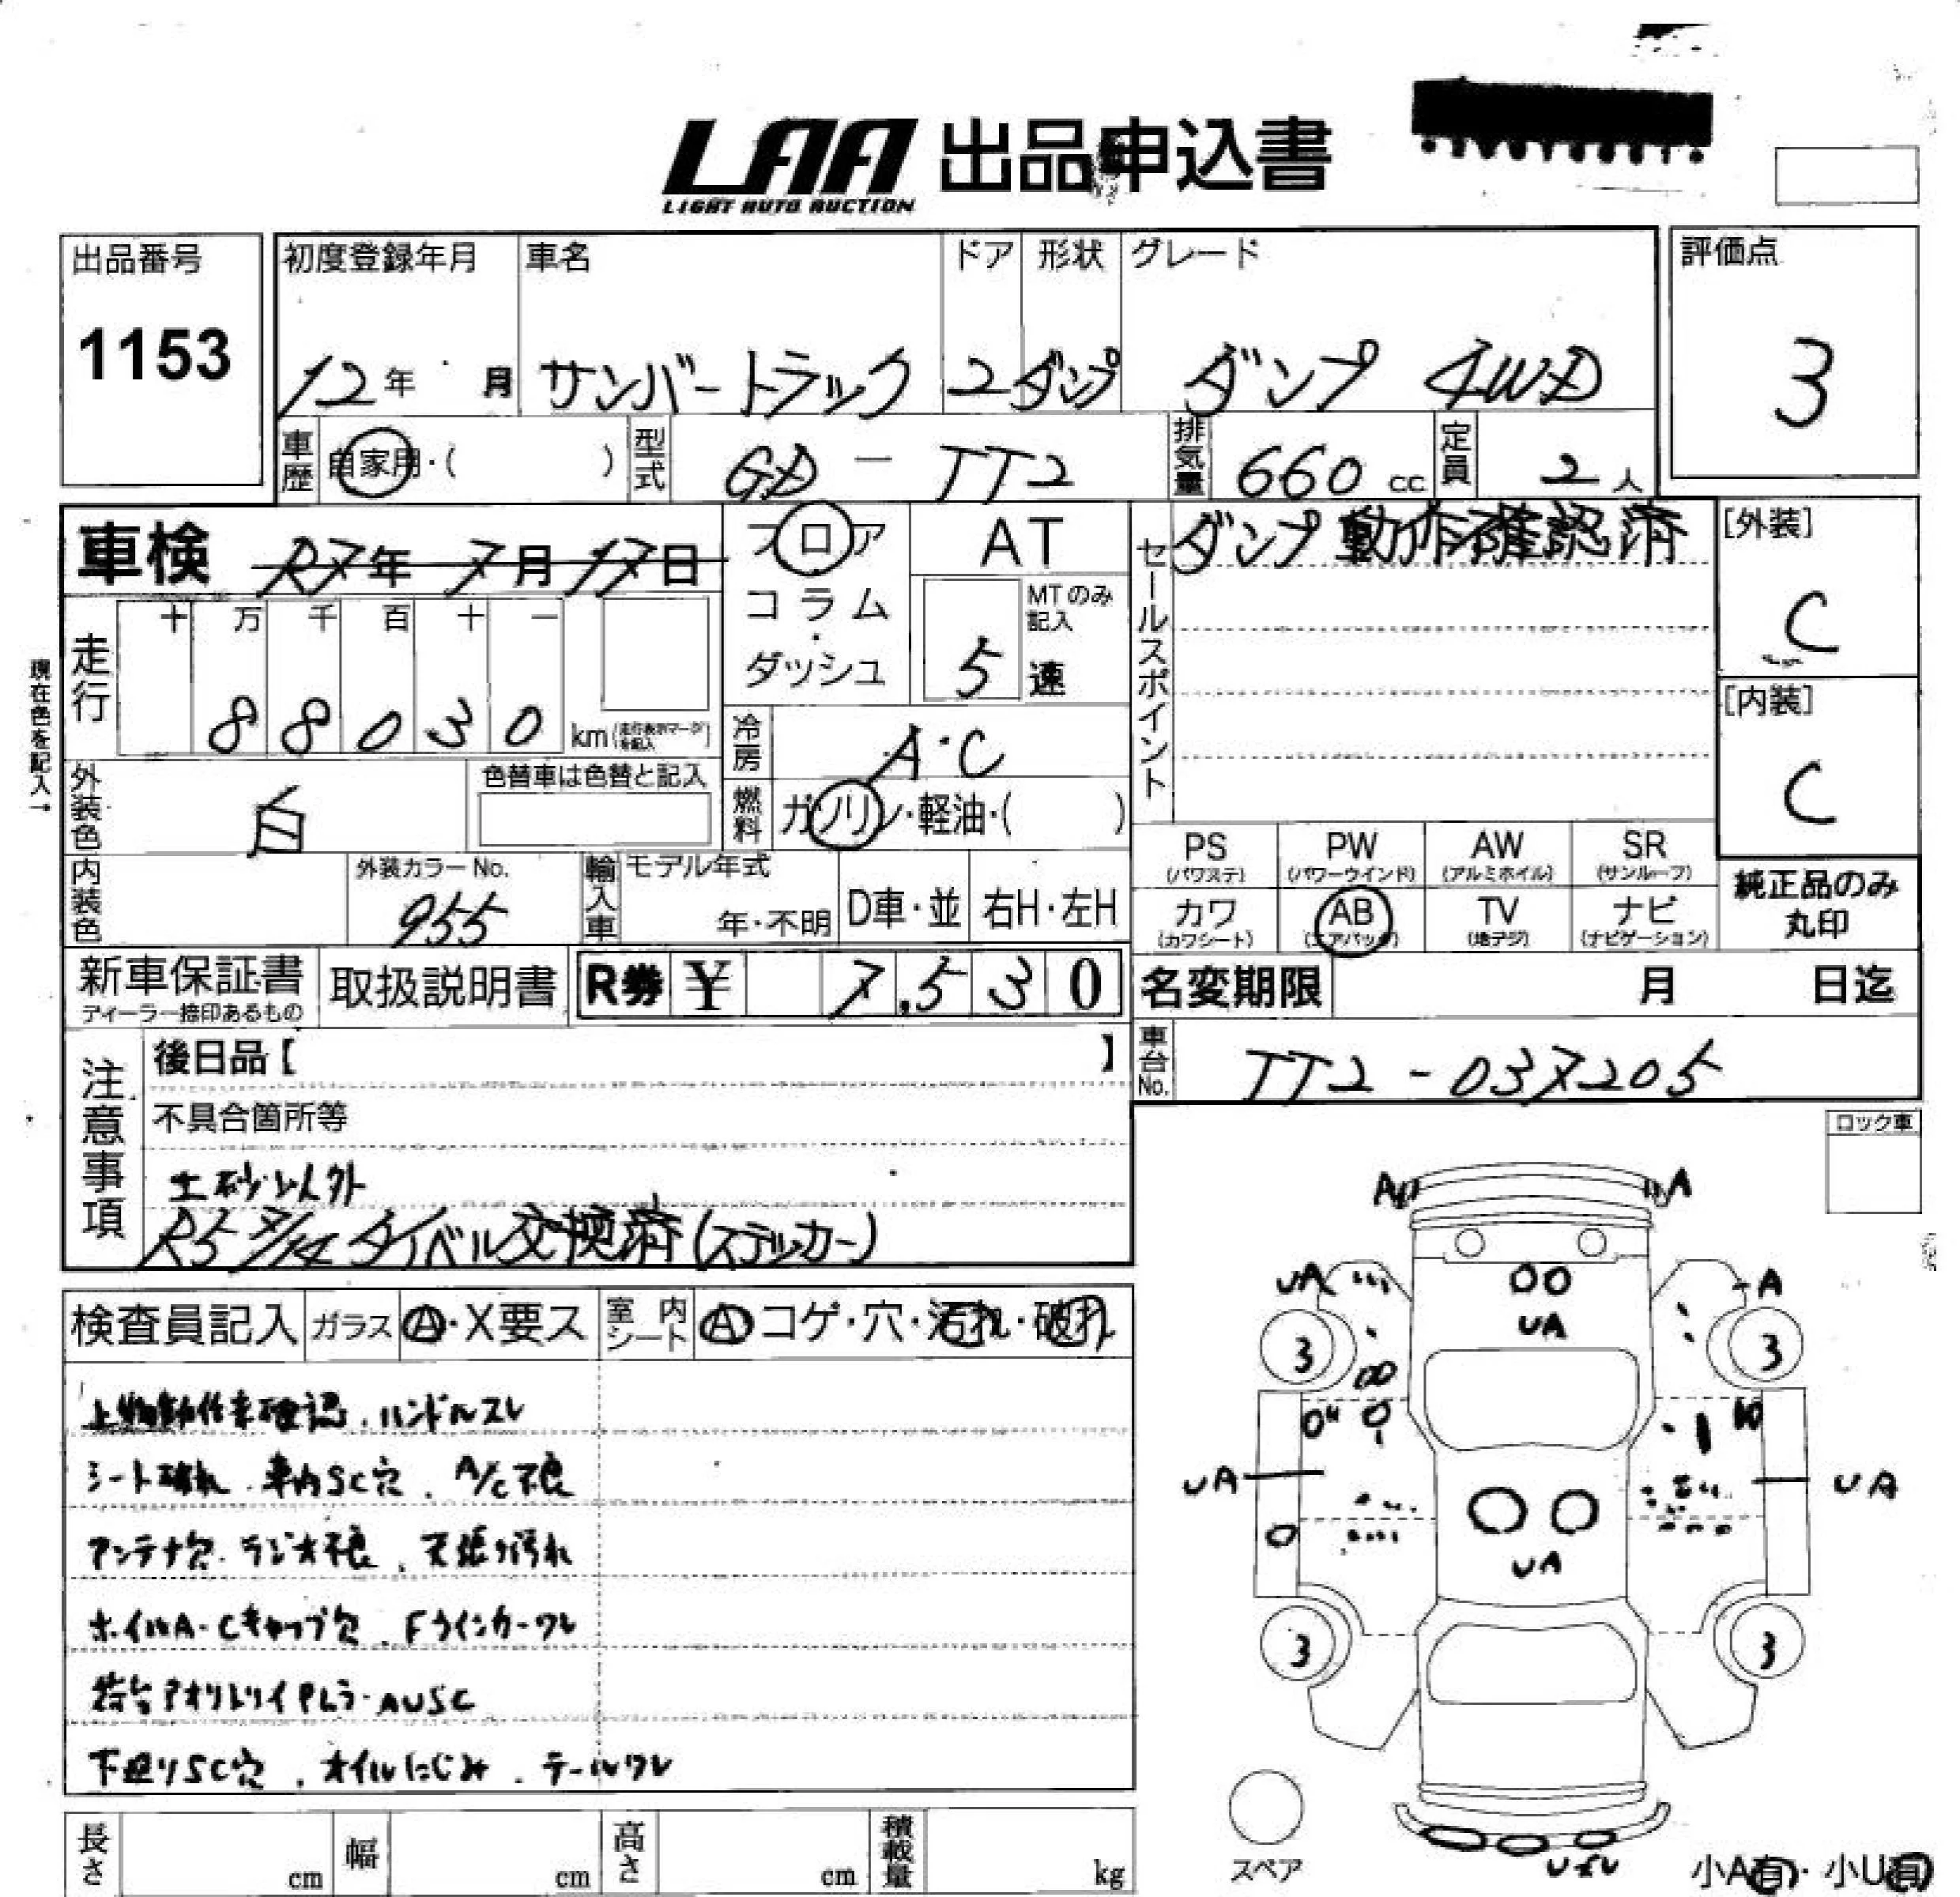 LAA 出品申込書
LIGHT AUTO AUCTION
出品番号 初度登録年月 車名 ドア 形状 グレード 評価点
1153 12年 月 サンバートラック 2 ダンプ ダンプ 4WD 3
車歴 自家用・( ) 型式 GD-TT2 排気量 660 cc 定員 2人
車検 R7年 7月 17日 フロア AT セールスポイント ダンプ動作確認済 [外装]
C
コラム・ダッシュ MTのみ記入 5速
走行 十 万 千 百 十 一
88030 km (走行表示マークを記入)
現在色を記入→
[内装]
C
冷房 A・C
外装色 白 色替車は色替と記入 燃料 ガソリン・軽油・( )
PS (パワステ) PW (パワーウインド) AW (アルミホイル) SR (サンルーフ)
内装色 外装カラーNo. 955 輸入車 モデル年式 年・不明 D車・並 右H・左H
カワ (カワシート) AB (エアバッグ) TV (地デジ) ナビ (ナビゲーション)
純正品のみ丸印
新車保証書 ディーラー捺印あるもの 取扱説明書 R券 ¥ 7,530 名変期限 月 日迄
注意事項 後日品【 】 車台No. TT2-037205
不具合箇所等
土砂以外
R5 7/14 タイベル交換済(ステッカー)
ロック車
検査員記入 ガラス A・X要ス 室内シート A コゲ・穴・汚れ・破れ
上物動作未確認、ハンドルスレ
シート破れ、車内SC穴、A/C不良
アンテナ欠、ラジオ不良、天張り汚れ
ホイルA・Cキャップ欠、Fウインカーワレ
荷台アオリトリイ AUSC
下廻りSC穴、オイルにじみ、テールワレ
A A
UA A
UA
3 3
UA UA
UA
3 3
スペア
小A有・小U有
長さ cm 幅 cm 高さ cm 積載量 kg